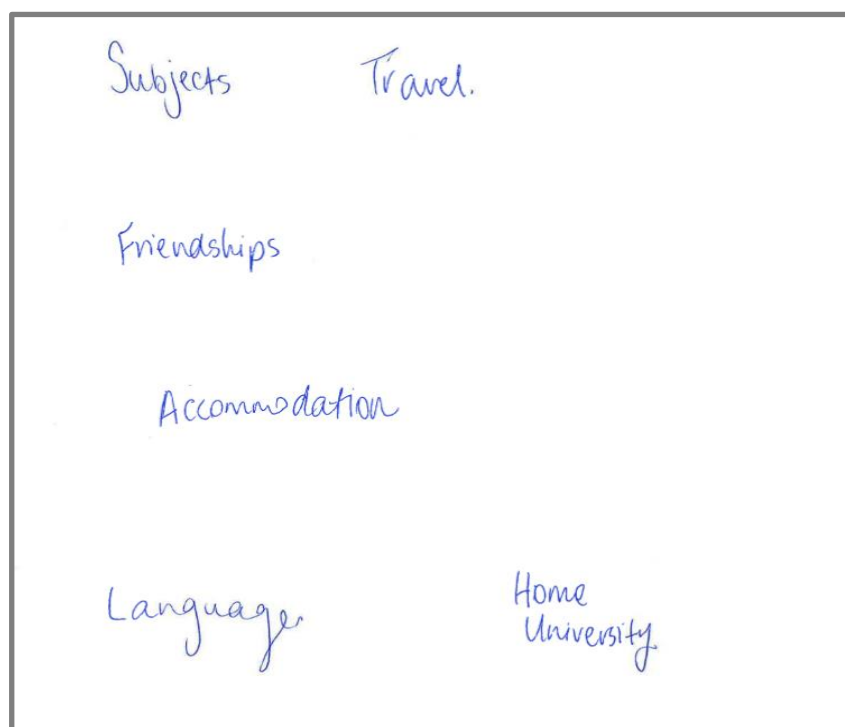 Subjects Travel.
Friendships
Accommodation
Language
Home
University